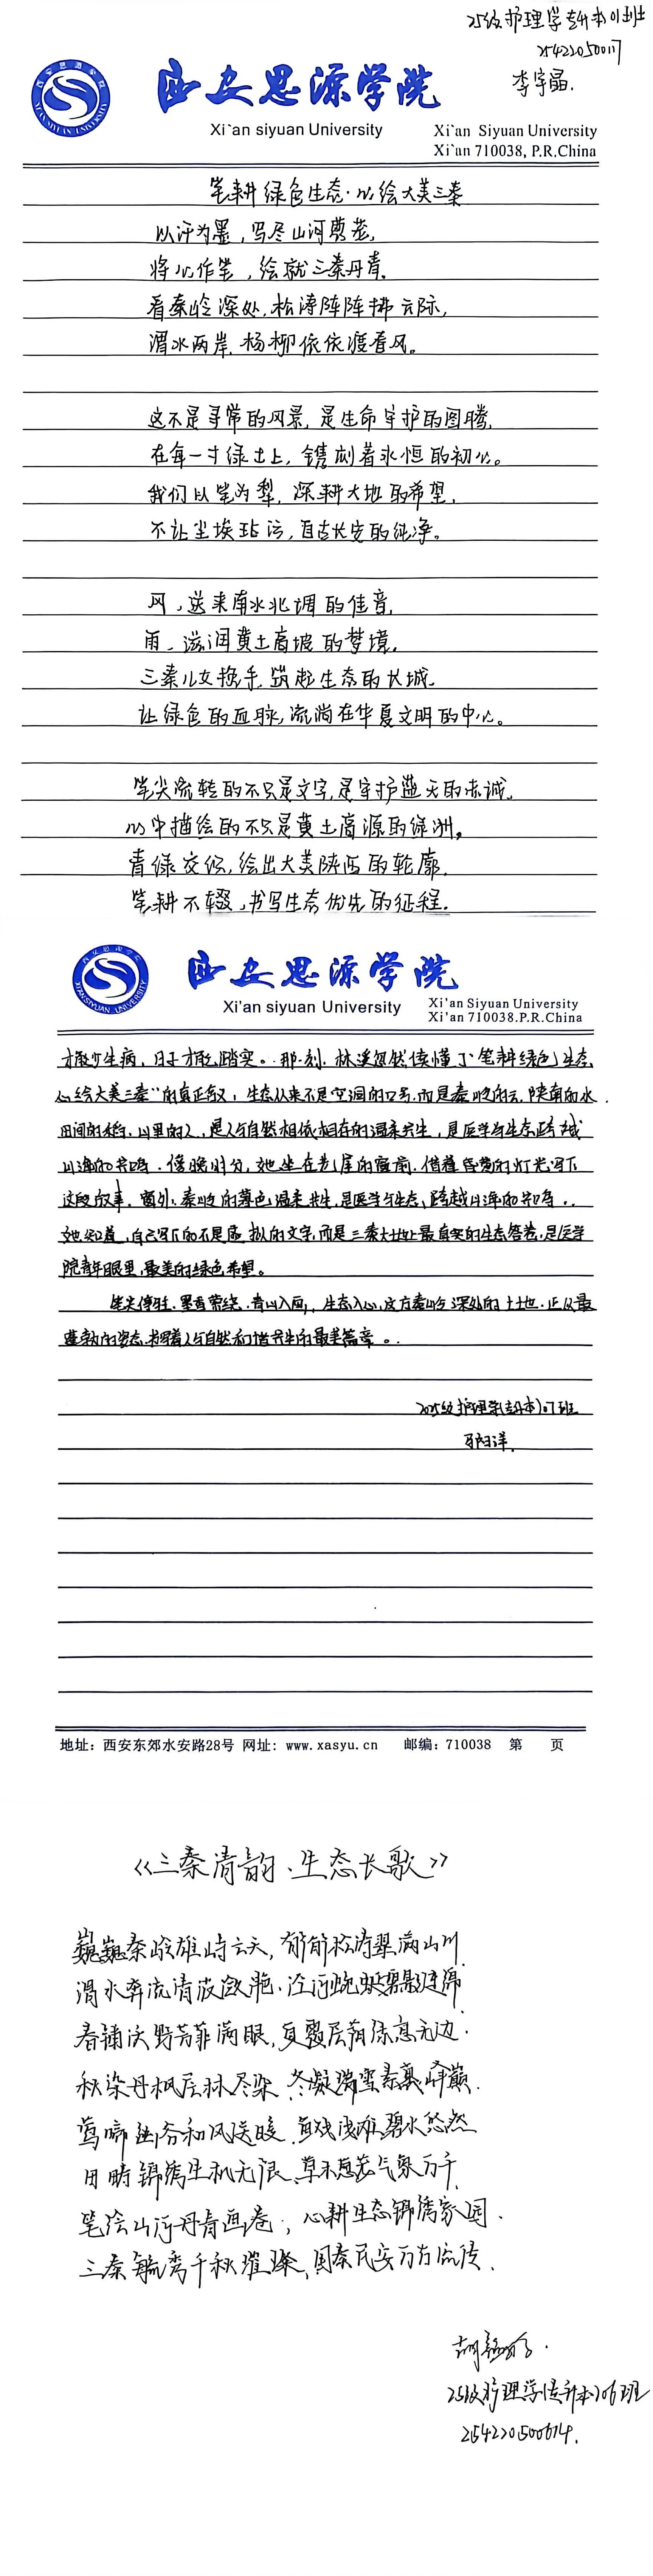 25级护理学专升本01班
25422050017
李宇晶.
西安思源学院
Xi`an siyuan University
Xi`an Siyuan University
Xi`an 710038, P.R.China
笔耕绿色生态·心绘大美三秦
以汗为墨,写尽山河画卷,
将心作笔,绘就三秦丹青.
看秦岭深处,松涛阵阵拂云际,
渭水两岸,杨柳依依渡春风。
这不是寻常的风景,是生命守护的图腾,
在每一寸绿土上,镌刻着永恒的初心。
我们以笔为犁,深耕大地的希望,
不让尘埃玷污,自古长安的纯净。
风,送来南水北调的佳音,
雨,滋润黄土高坡的梦境.
三秦儿女携手,筑起生态的长城.
让绿色的血脉,流淌在华夏文明的中心。
笔尖流转的不只是文字,是守护蓝天的赤诚.
心中描绘的不只是黄土高源的绿洲。
青绿交织,绘出大美陕西的轮廓.
笔耕不辍,书写生态优先的征程.
西安思源学院
Xi'an siyuan University
Xi'an Siyuan University
Xi'an 710038.P.R.China
才敢少生病,日子才敢踏实。那一刻,林溪忽然读懂了"笔耕绿色生态,
心绘大美三秦"的真正含义:生态从来不是空洞的口号,而是秦岭的云,陕南的水.
田间的稻,山里的人,是人与自然相依相存的温柔共生,是医学与生态跨越
山海的共鸣.傍晚时分,她坐在老屋的窗前.借着昏黄的灯光写下
这段故事.窗外,秦岭的暮色温柔共生,是医学与生态,跨越山海的共鸣..
她知道,自己写下的不是虚拟的文字,而是三秦大地上最真实的生态答卷,是医学
院青年眼里,最美的绿色希望。
笔尖停驻.墨香萦绕.青山入画,生态入心,这方秦岭深处的土地.正以最
蓬勃的姿态.书写着人与自然和谐共生的最美篇章。
2025级护理学(专升本)07班
地址: 西安东郊水安路28号 网址: www.xasyu.cn 邮编: 710038 第 页
《三秦清韵、生态长歌》
巍巍秦岭雄峙云天,郁郁松涛翠满山川.
渭水奔流清波潋滟,泾河蜿蜒碧影连绵
春铺沃野芳菲满眼,夏覆层荫绿意无边.
秋染丹枫层林尽染,冬凝瑞雪素裹峰巅.
莺啼幽谷和风送暖,鱼戏浅滩碧水悠然
田畴锦绣生机无限,草木葱茏气象万千.
笔绘山河丹青画卷,心耕生态锦绣家园.
三秦毓秀千秋璀璨,国泰民安万古流传.
25级护理学专升本06班
254220500614.